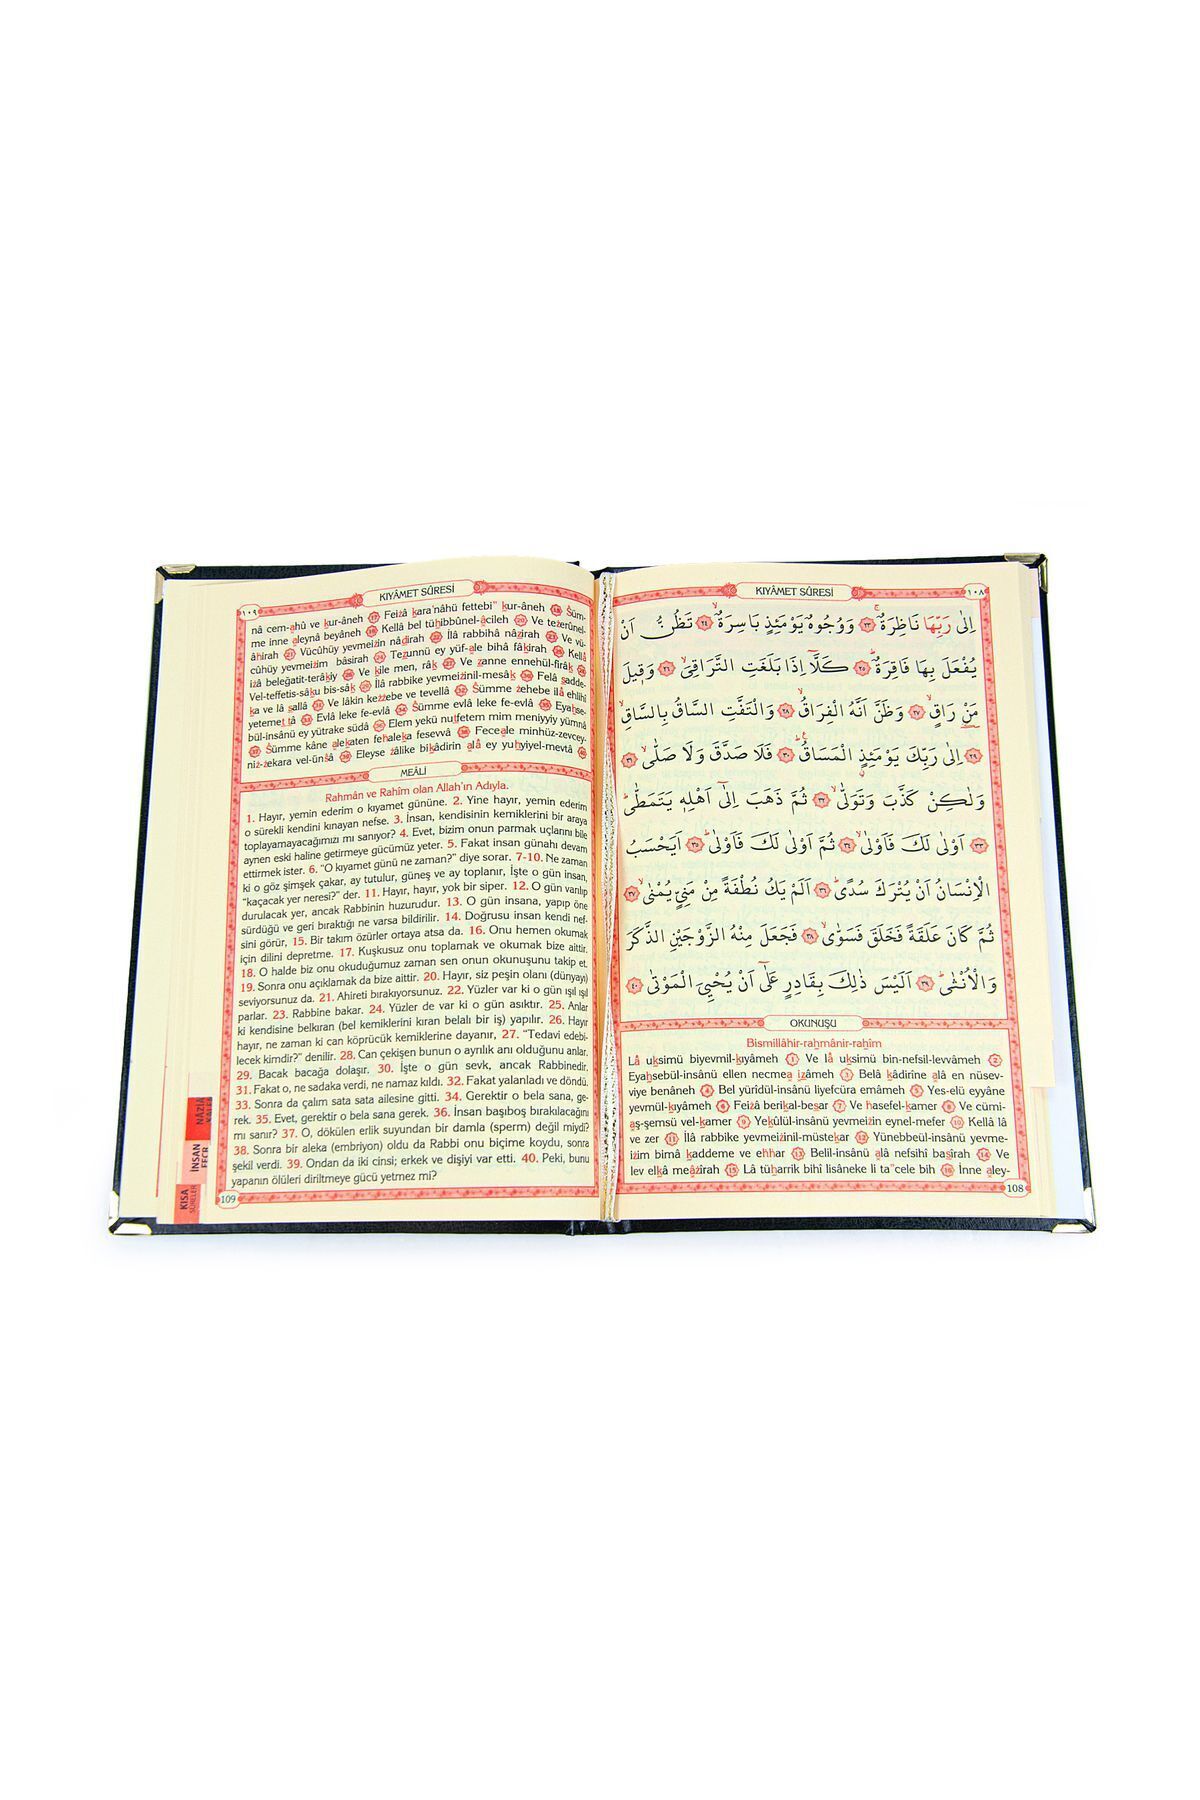 KIYÂMET SÛRESİ
١٠٨
اِلٰى رَبِّهَا نَاظِرَةٌۚ ﴿٢٣﴾ وَوُجُوهٌ يَوْمَئِذٍ بَاسِرَةٌۙ ﴿٢٤﴾ تَظُنُّ اَنْ
يُفْعَلَ بِهَا فَاقِرَةٌۜ ﴿٢٥﴾ كَلَّٓا اِذَا بَلَغَتِ التَّرَاقِيَۙ ﴿٢٦﴾ وَقٖيلَ
مَنْ رَاقٍۙ ﴿٢٧﴾ وَظَنَّ اَنَّهُ الْفِرَاقُۙ ﴿٢٨﴾ وَالْتَفَّتِ السَّاقُ بِالسَّاقِۙ
﴿٢٩﴾ اِلٰى رَبِّكَ يَوْمَئِذٍ الْمَسَاقُۜ ﴿٣٠﴾ فَلَا صَدَّقَ وَلَا صَلّٰىۙ ﴿٣١﴾
وَلٰكِنْ كَذَّبَ وَتَوَلّٰىۙ ﴿٣٢﴾ ثُمَّ ذَهَبَ اِلٰٓى اَهْلِهٖ يَتَمَطّٰىۜ
﴿٣٣﴾ اَوْلٰى لَكَ فَاَوْلٰىۙ ﴿٣٤﴾ ثُمَّ اَوْلٰى لَكَ فَاَوْلٰىۜ ﴿٣٥﴾ اَيَحْسَبُ
الْاِنْسَانُ اَنْ يُتْرَكَ سُدًىۜ ﴿٣٦﴾ اَلَمْ يَكُ نُطْفَةً مِنْ مَنِيٍّ يُمْنٰىۙ ﴿٣٧﴾
ثُمَّ كَانَ عَلَقَةً فَخَلَقَ فَسَوّٰىۙ ﴿٣٨﴾ فَجَعَلَ مِنْهُ الزَّوْجَيْنِ الذَّكَرَ
وَالْاُنْثٰىۜ ﴿٣٩﴾ اَلَيْسَ ذٰلِكَ بِقَادِرٍ عَلٰٓى اَنْ يُحْيِيَ الْمَوْتٰى ﴿٤٠﴾
OKUNUŞU
Bismillâhir-rahmânir-rahîm
Lâ uksimü biyevmil-kıyâmeh 1 Ve lâ uksimü bin-nefsil-levvâmeh 2
Eyahsebül-insânü ellen necmea izâmeh 3 Belâ kâdirîne alâ en nüsev-
viye benâneh 4 Bel yürîdül-insânü liyefcüra emâmeh 5 Yes-elü eyyâne
yevmül-kıyâmeh 6 Feizâ berikal-besar 7 Ve hasefel-kamer 8 Ve cümi-
aş-şemsü vel-kamer 9 Yekûlül-insânü yevmeizin eynel-mefer 10 Kellâ lâ
ve zer 11 İlâ rabbike yevmeizinil-müstekar 12 Yünebbeül-insânü yevme-
izim bimâ kaddeme ve ehhar 13 Belil-insânü alâ nefsihî basîrah 14 Ve
lev elkâ meâzîrah 15 Lâ tüharrik bihî lisâneke li ta"cele bih 16 İnne aley-
108
KIYÂMET SÛRESİ
١٠٩
nâ cem-ahû ve kur-âneh 17 Feizâ kara'nâhü fettebi" kur-âneh 18 Süm-
me inne aleynâ beyâneh 19 Kellâ bel tühıbbûnel-âcileh 20 Ve tezerûnel-
âhirah 21 Vücûhüy yevmeizin nâdirah 22 İlâ rabbihâ nâzirah 23 Ve vü-
cûhüy yevmeizim bâsirah 24 Tezunnü ey yüf-ale bihâ fâkirah 25 Kellâ
izâ beleğatit-terâkıy 26 Ve kîle men, râk 27 Ve zanne ennehül-firâk 28
Vel-teffetis-sâku bis-sâk 29 İlâ rabbike yevmeizinil-mesâk 30 Felâ sadde-
ka ve lâ sallâ 31 Ve lâkin kezzebe ve tevellâ 32 Sümme zehebe ilâ ehlihî
yetemettâ 33 Evlâ leke fe-evlâ 34 Sümme evlâ leke fe-evlâ 35 Eyahse-
bül-insânü ey yütrake südâ 36 Elem yekü nutfetem mim meniyyiy yümnâ
37 Sümme kâne alekaten fehaleka fesevvâ 38 Feceale minhüz-zevcey-
niz-zekara vel-ünsâ 39 Eleyse zâlike bikâdirin alâ ey yuhyiyel-mevtâ 40
MEÂLİ
Rahmân ve Rahîm olan Allah'ın Adıyla.
1. Hayır, yemin ederim o kıyamet gününe. 2. Yine hayır, yemin ederim
o sürekli kendini kınayan nefse. 3. İnsan, kendisinin kemiklerini bir araya
toplayamayacağımızı mı sanıyor? 4. Evet, bizim onun parmak uçlarını bile
aynen eski haline getirmeye gücümüz yeter. 5. Fakat insan günahı devam
ettirmek ister. 6. "O kıyamet günü ne zaman?" diye sorar. 7-10. Ne zaman
ki o göz şimşek çakar, ay tutulur, güneş ve ay toplanır, İşte o gün insan,
"kaçacak yer neresi?" der. 11. Hayır, hayır, yok bir siper. 12. O gün varılıp
durulacak yer, ancak Rabbinin huzurudur. 13. O gün insana, yapıp öne
sürdüğü ve geri bıraktığı ne varsa bildirilir. 14. Doğrusu insan kendi nef-
sini görür, 15. Bir takım özürler ortaya atsa da. 16. Onu hemen okumak
için dilini depretme. 17. Kuşkusuz onu toplamak ve okumak bize aittir.
18. O halde biz onu okuduğumuz zaman sen onun okunuşunu takip et.
19. Sonra onu açıklamak da bize aittir. 20. Hayır, siz peşin olanı (dünyayı)
seviyorsunuz da. 21. Ahireti bırakıyorsunuz. 22. Yüzler var ki o gün ışıl ışıl
parlar. 23. Rabbine bakar. 24. Yüzler de var ki o gün asıktır. 25. Anlar
ki kendisine belkıran (bel kemiklerini kıran belalı bir iş) yapılır. 26. Hayır
hayır, ne zaman ki can köprücük kemiklerine dayanır, 27. "Tedavi edebi-
lecek kimdir?" denilir. 28. Can çekişen bunun o ayrılık anı olduğunu anlar.
29. Bacak bacağa dolaşır. 30. İşte o gün sevk, ancak Rabbinedir.
31. Fakat o, ne sadaka verdi, ne namaz kıldı. 32. Fakat yalanladı ve döndü.
33. Sonra da çalım sata sata ailesine gitti. 34. Gerektir o bela sana, ge-
rek. 35. Evet, gerektir o bela sana gerek. 36. İnsan başıboş bırakılacağını
mı sanır? 37. O, dökülen erlik suyundan bir damla (sperm) değil miydi?
38. Sonra bir aleka (embriyon) oldu da Rabbi onu biçime koydu, sonra
şekil verdi. 39. Ondan da iki cinsi; erkek ve dişiyi var etti. 40. Peki, bunu
yapanın ölüleri diriltmeye gücü yetmez mi?
109
KISA
SÛRELER
İNSAN
FECR
NÂZİÂ